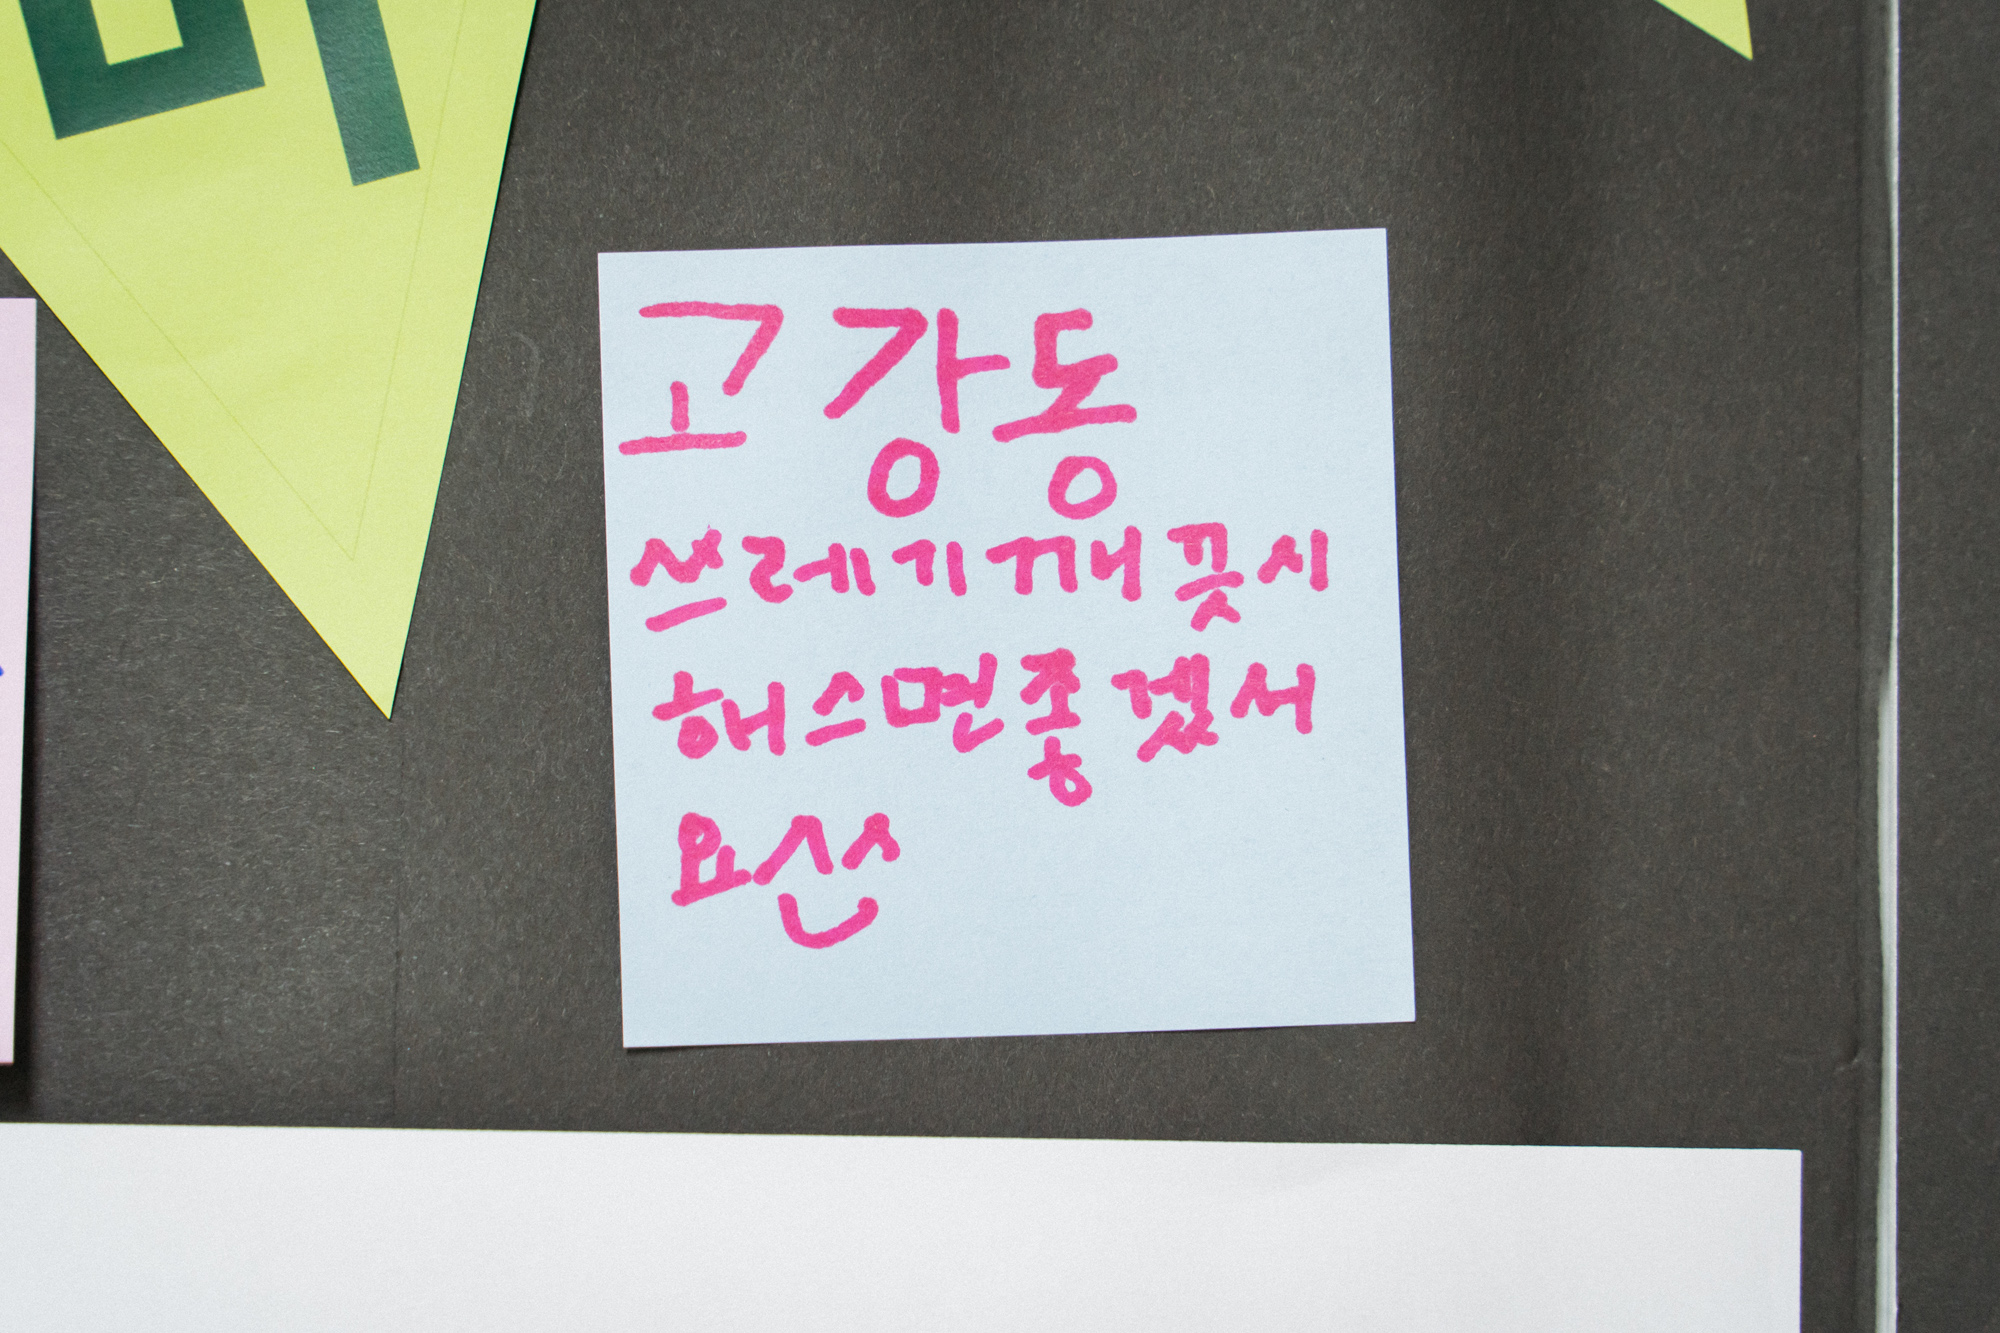 고강동
쓰레기깨끗시
해스면좋겠서
요